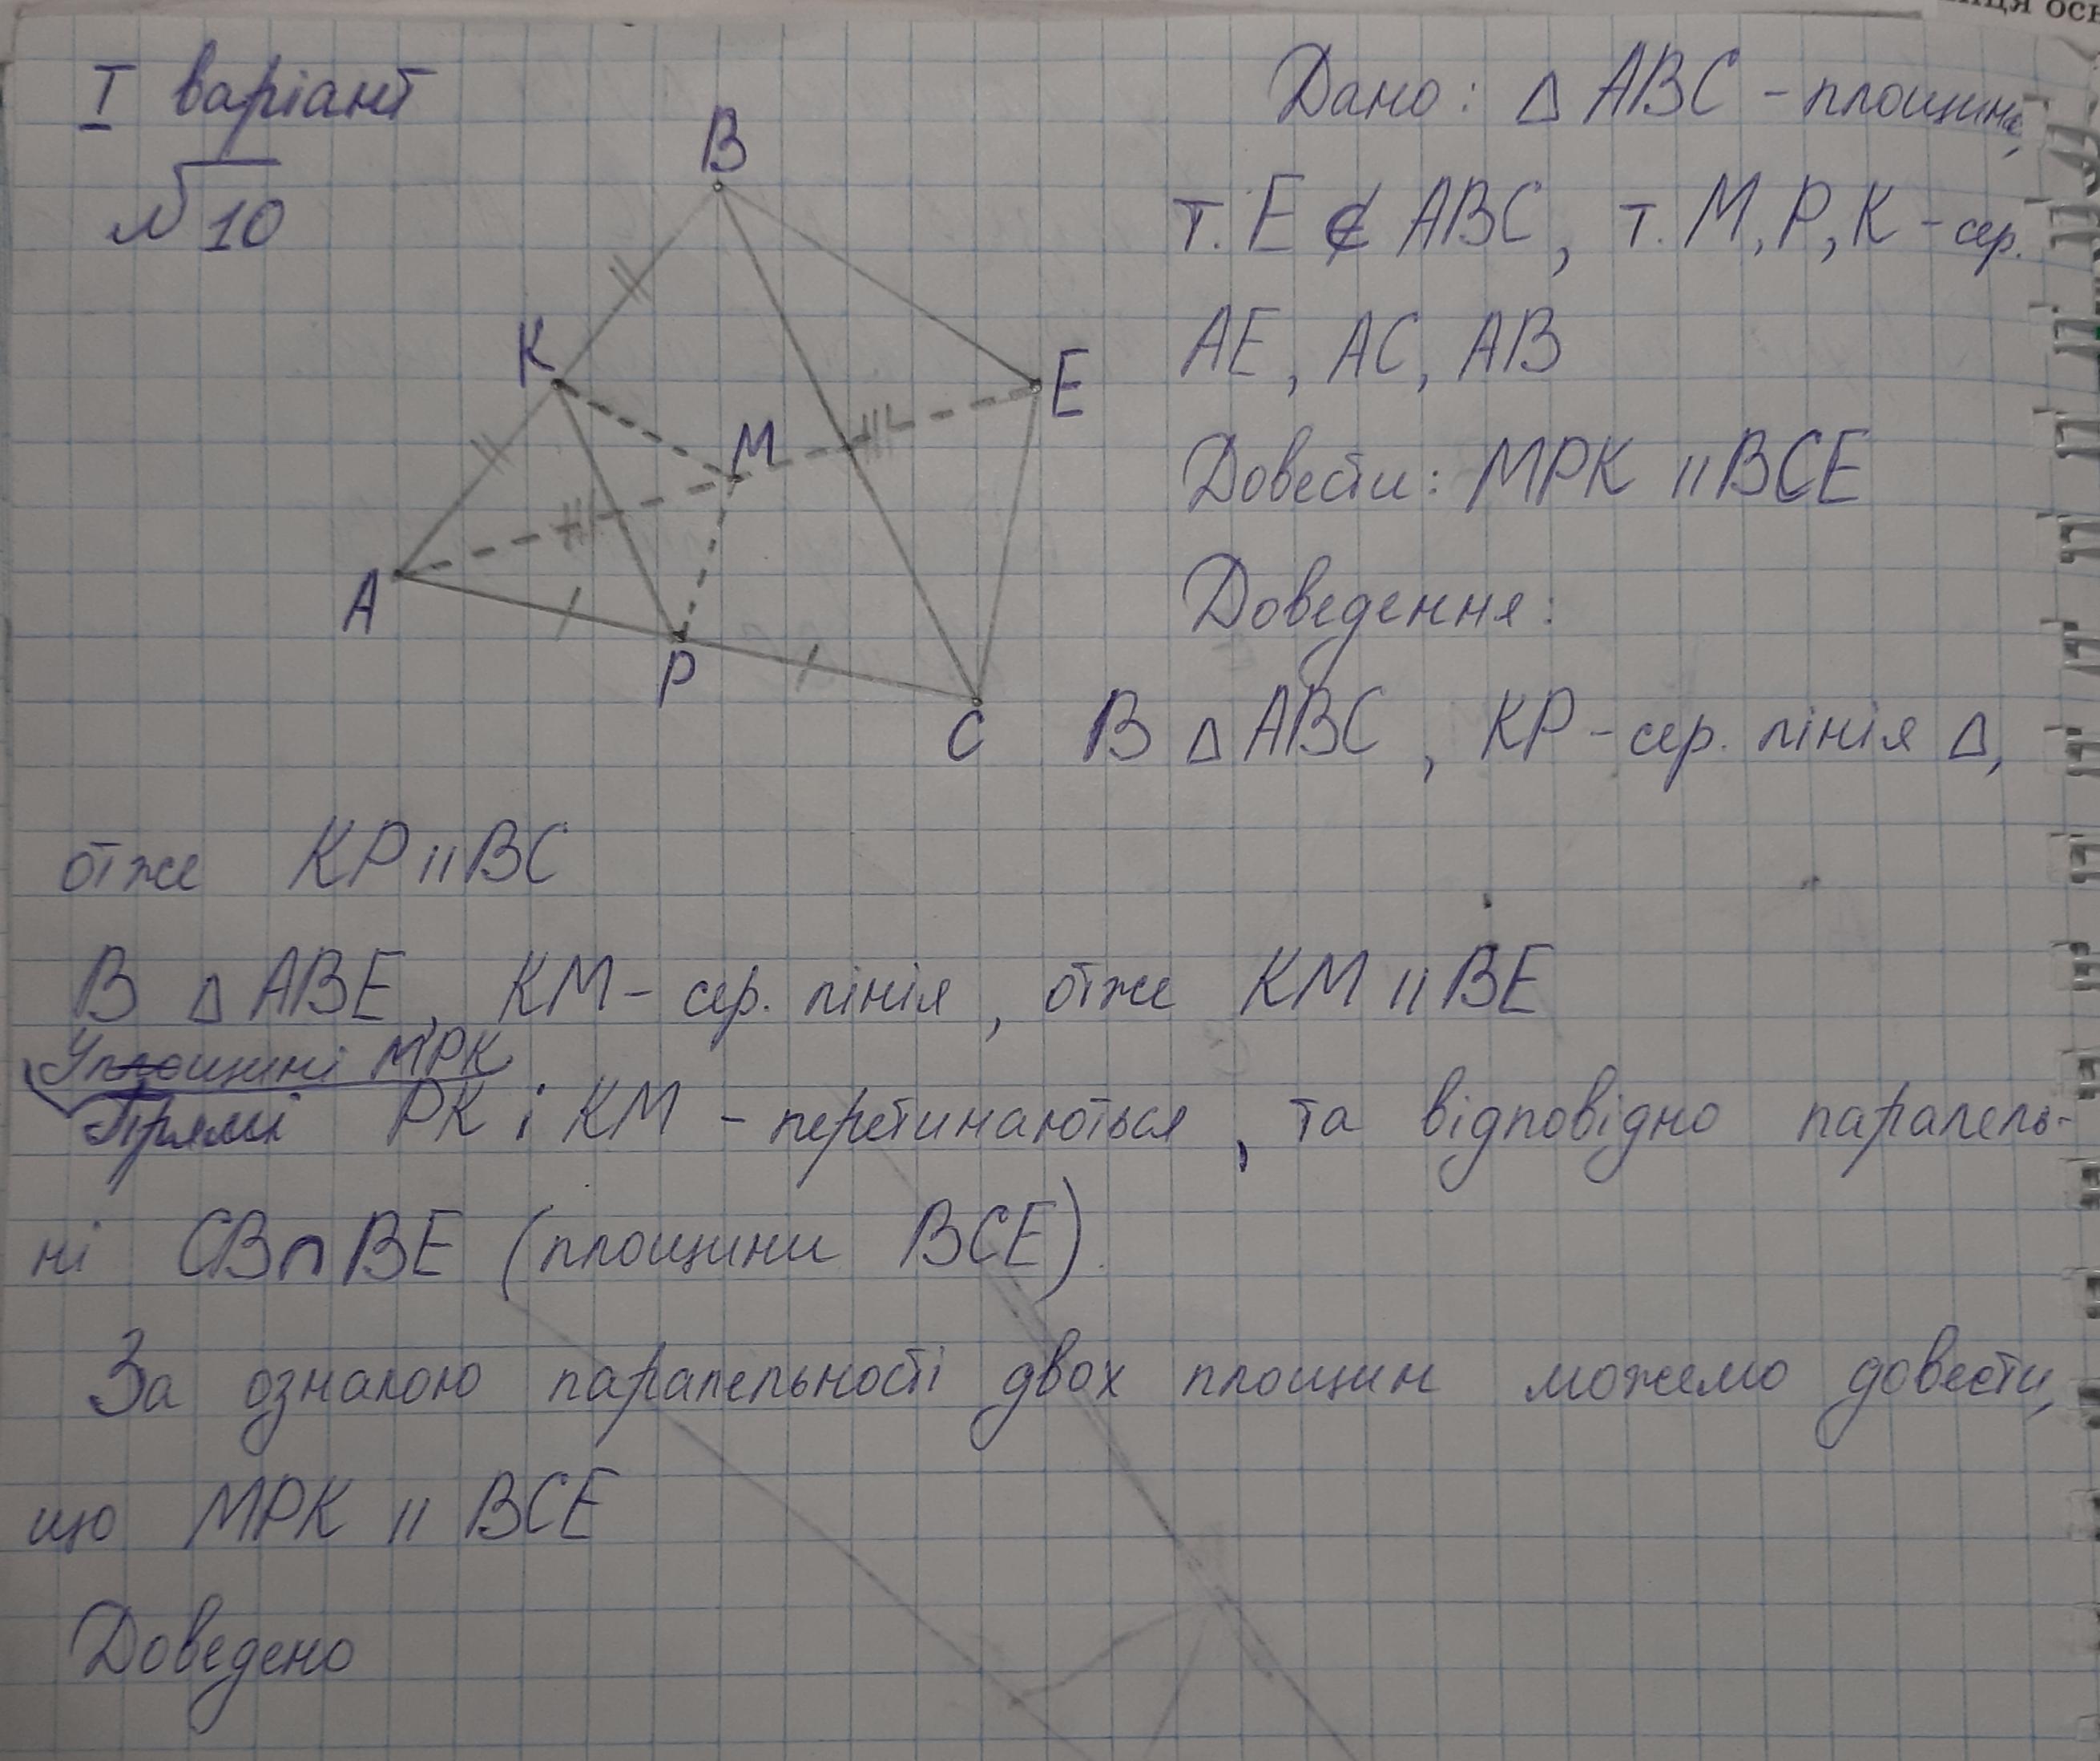 иця осн
I варіант
№10
B
K
M
E
A
P
C
Дано: Δ ABC - площина,
т. E ∉ ABC, т. M, P, K - сер.
AE, AC, AB
Довести: MPK || BCE
Доведення:
В Δ ABC, KP - сер. лінія Δ,
отже KP || BC
В Δ ABE, KM - сер. лінія, отже KM || BE
У площині MPK
Прямі PK і KM - перетинаються, та відповідно паралель-
ні CB ∩ BE (площини BCE).
За ознакою паралельності двох площин можемо довести,
що MPK || BCE
Доведено